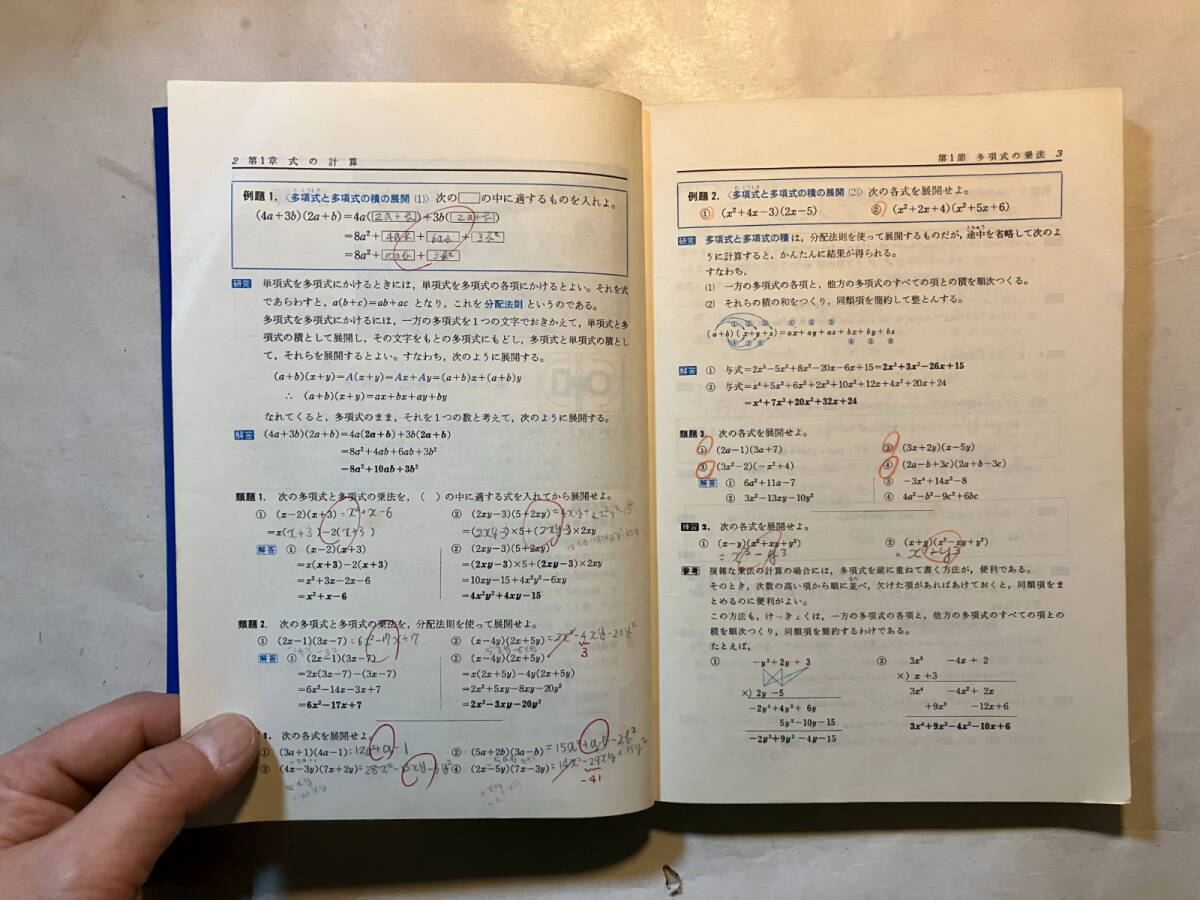 2 第1章 式の計算
例題 1. 〈多項式と多項式の積の展開 (1)〉 次の□の中に適するものを入れよ。
(4a+3b)(2a+b)=4a(2a+b)+3b(2a+b)
=8a²+4ab+6ab+3b²
=8a²+10ab+3b²
研究 単項式を多項式にかけるときには，単項式を多項式の各項にかけるとよい。それを式
であらわすと，a(b+c)=ab+ac となり，これを 分配法則 というのである。
多項式を多項式にかけるには，一方の多項式を1つの文字でおきかえて，単項式と多
項式の積として展開し，その文字をもとの多項式にもどし，多項式と単項式の積とし
て，それらを展開するとよい。すなわち，次のように展開する。
(a+b)(x+y)=A(x+y)=Ax+Ay=(a+b)x+(a+b)y
∴ (a+b)(x+y)=ax+bx+ay+by
なれてくると，多項式のまま，それを1つの数と考えて，次のように展開する。
解答 (4a+3b)(2a+b)=4a(2a+b)+3b(2a+b)
=8a²+4ab+6ab+3b²
=8a²+10ab+3b²
類題 1. 次の多項式と多項式の乗法を，( ) の中に適する式を入れてから展開せよ。
① (x-2)(x+3)=x²+x-6
=x(x+3)-2(x+3)
② (2xy-3)(5+2xy)
=(2xy-3)×5+(2xy-3)×2xy
解答 ① (x-2)(x+3)
=x(x+3)-2(x+3)
=x²+3x-2x-6
=x²+x-6
② (2xy-3)(5+2xy)
=(2xy-3)×5+(2xy-3)×2xy
=10xy-15+4x²y²-6xy
=4x²y²+4xy-15
類題 2. 次の多項式と多項式の乗法を，分配法則を使って展開せよ。
① (2x-1)(3x-7)=6x²-17x+7
② (x-4y)(2x+5y)=2x²-4xy-20y²
3
解答 ① (2x-1)(3x-7)
=2x(3x-7)-(3x-7)
=6x²-14x-3x+7
=6x²-17x+7
② (x-4y)(2x+5y)
=x(2x+5y)-4y(2x+5y)
=2x²+5xy-8xy-20y²
=2x²-3xy-20y²
1. 次の各式を展開せよ。
① (3a+1)(4a-1)=12a²+a-1
② (5a+2b)(3a-b)=15a²+ab-2b²
③ (4x-3y)(7x+2y)=28x²
④ (2x-5y)(7x-3y)=14x²-29xy+15y²
-41
第1節 多項式の乗法 3
例題 2. 〈多項式と多項式の積の展開 (2)〉 次の各式を展開せよ。
① (x²+4x-3)(2x-5) ② (x²+2x+4)(x²+5x+6)
研究 多項式と多項式の積 は，分配法則を使って展開するものだが，途中を省略して次のよ
うに計算すると，かんたんに結果が得られる。
すなわち，
(1) 一方の多項式の各項と，他方の多項式のすべての項との積を順次つくる。
(2) それらの積の和をつくり，同類項を簡約して整とんする。
① ② ③ ① ② ③
(a+b)(x+y+z)=ax+ay+az+bx+by+bz
④ ⑤ ⑥ ④ ⑤ ⑥
解答 ① 与式=2x³-5x²+8x²-20x-6x+15=2x³+3x²-26x+15
② 与式=x⁴+5x³+6x²+2x³+10x²+12x+4x²+20x+24
=x⁴+7x³+20x²+32x+24
類題 3. 次の各式を展開せよ。
① (2a-1)(3a+7) ② (3x+2y)(x-5y)
③ (3x²-2)(-x²+4) ④ (2a-b+3c)(2a+b-3c)
解答 ① 6a²+11a-7 ③ -3x⁴+14x²-8
② 3x²-13xy-10y² ④ 4a²-b²-9c²+6bc
練習 2. 次の各式を展開せよ。
① (x-y)(x²+xy+y²) ② (x+y)(x²-xy+y²)
= x³-y³ = x³+y³
参考 複雑な乗法の計算の場合には，多項式を縦に重ねて書く方法が，便利である。
そのとき，次数の高い項から順に並べ，欠けた項があればあけておくと，同類項をま
とめるのに便利がよい。
この方法も，けっきょくは，一方の多項式の各項と，他方の多項式のすべての項との
積を順次つくり，同類項を簡約するわけである。
たとえば，
① -y³+2y + 3
×) 2y -5
-2y⁴+4y²+ 6y
5y³-10y-15
-2y³+9y²-4y-15
② 3x³ -4x + 2
×) x +3
3x⁴ -4x²+ 2x
+9x³ -12x+6
3x⁴+9x³-4x²-10x+6